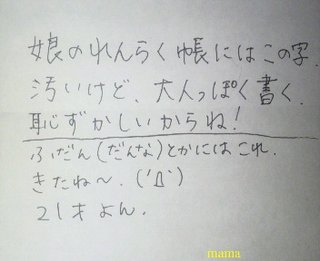 娘のれんらく帳にはこの字.
汚いけど、大人っぽく書く.
恥ずかしいからね!
ふだん(だんな)とかにはこれ.
きたね〜.('Д`)
21才よん.
mama